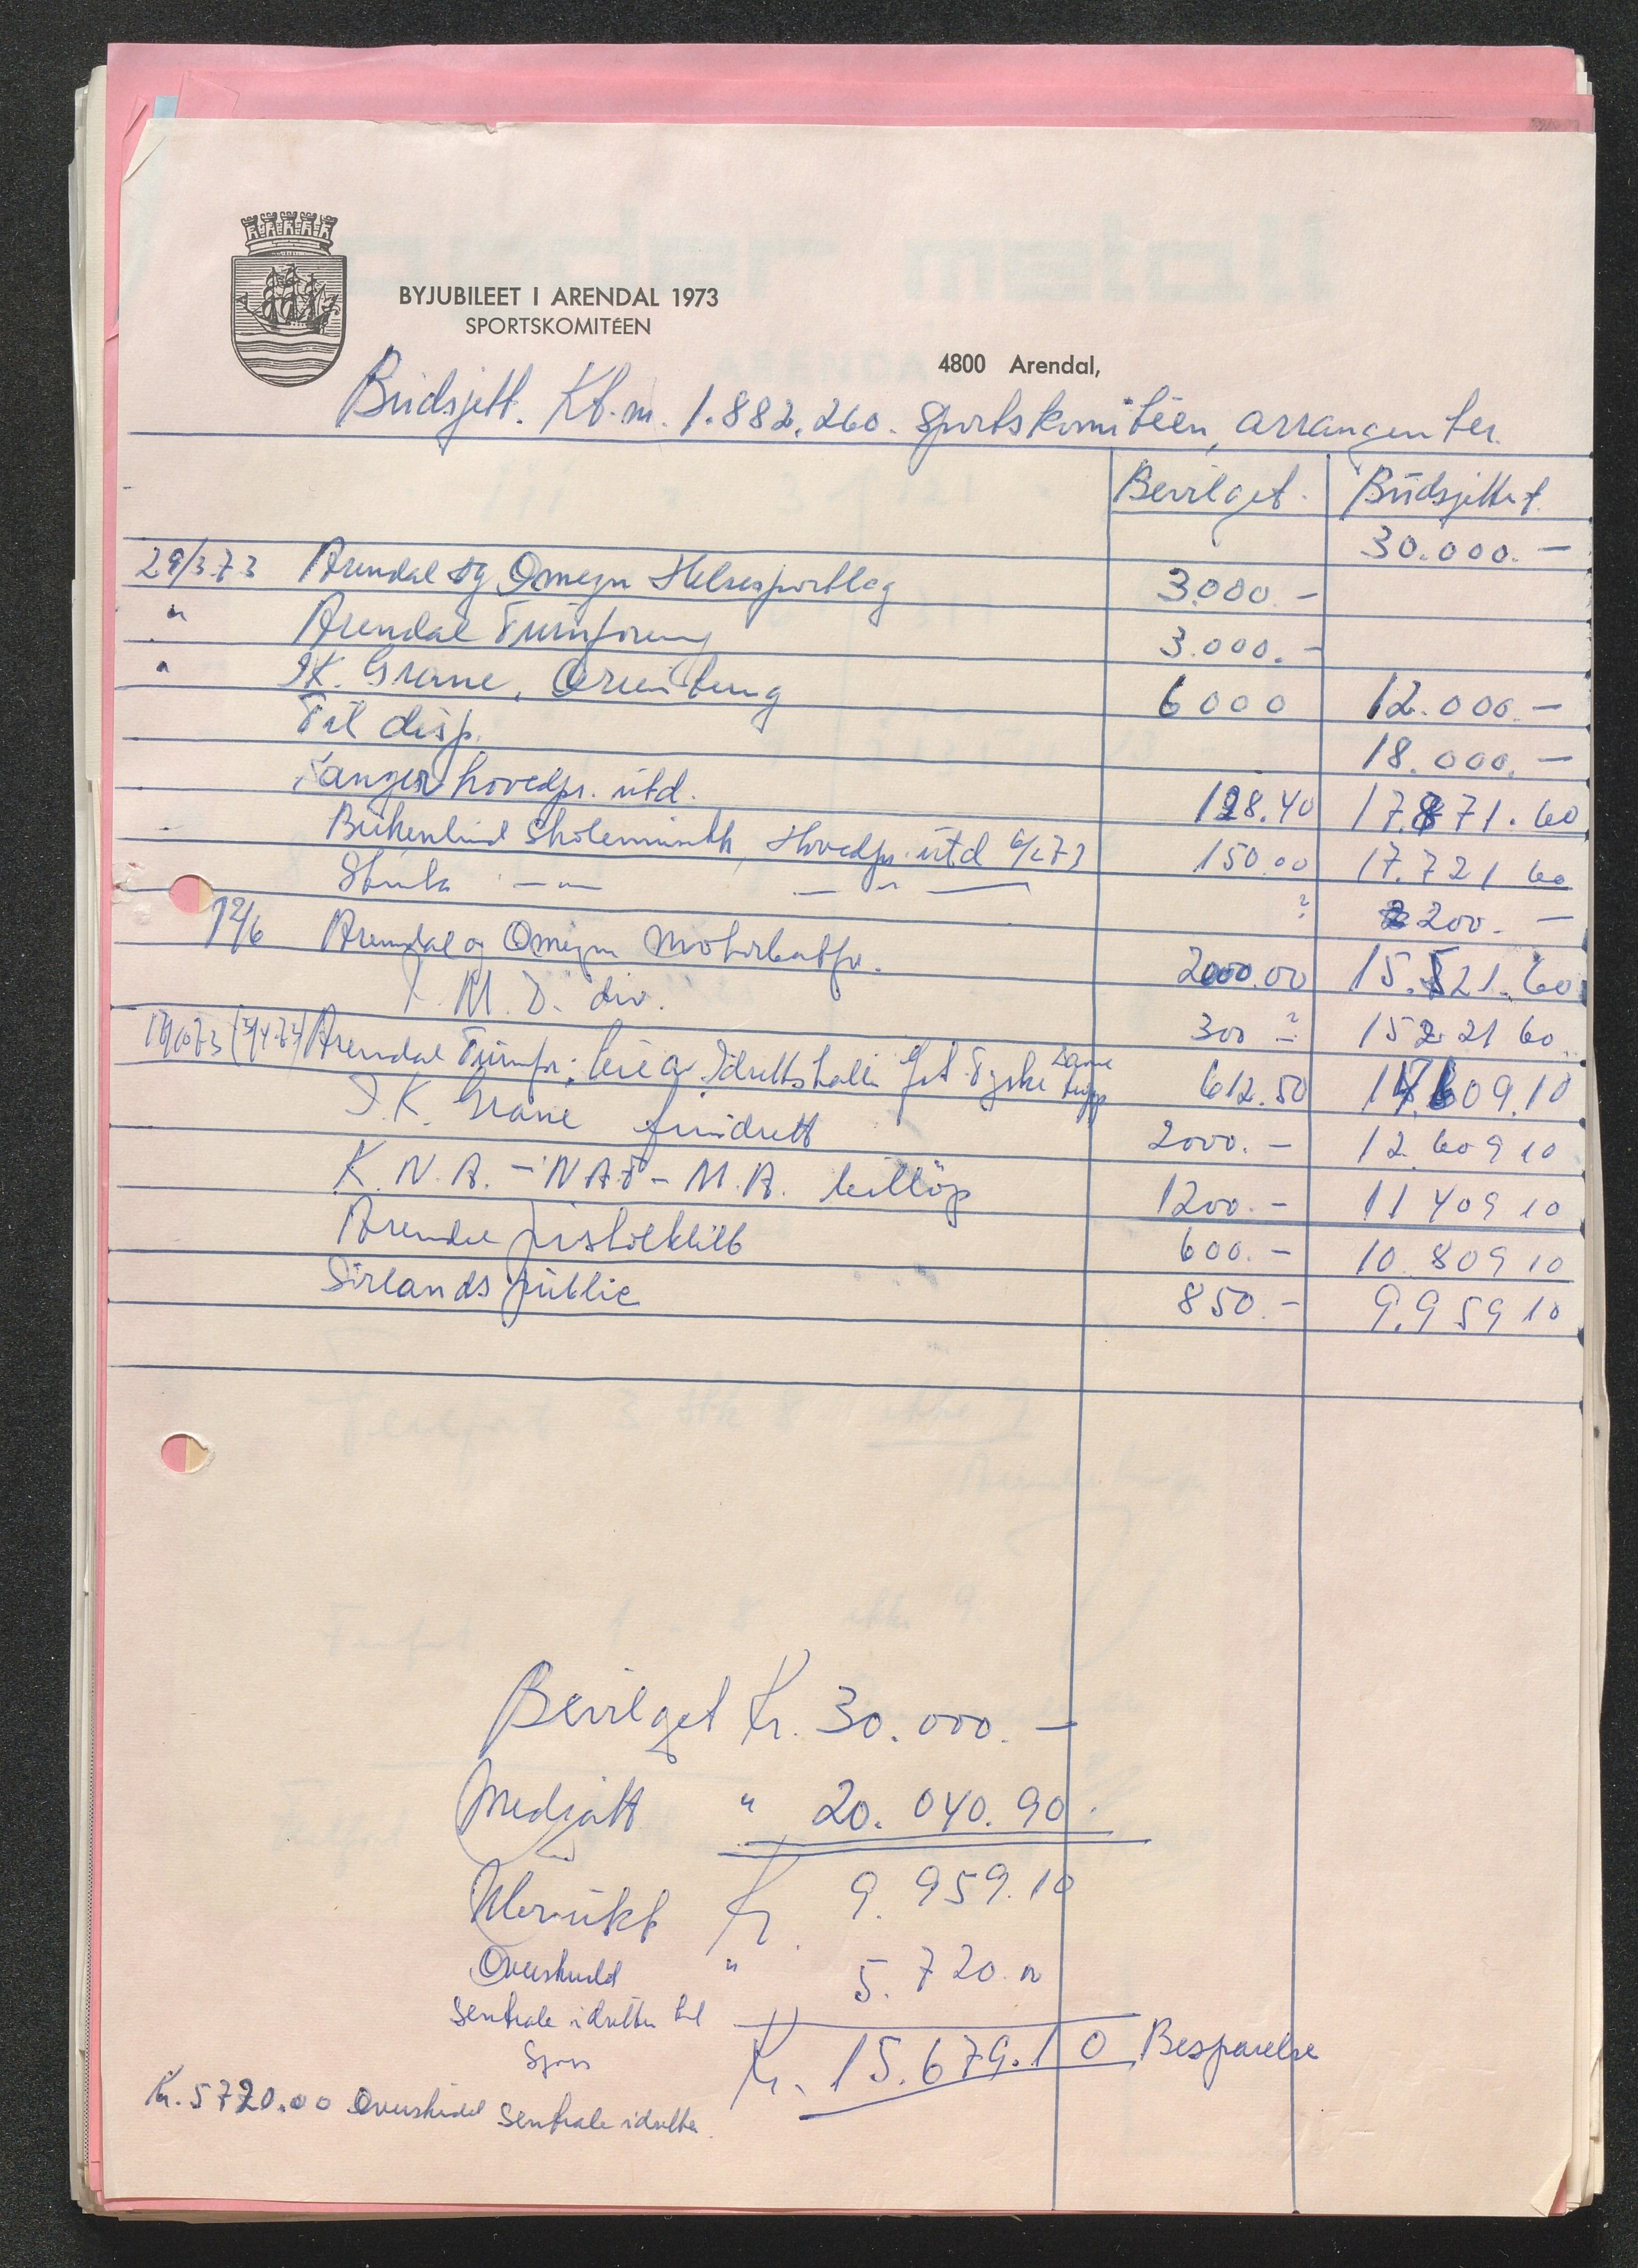 BYJUBILEET I ARENDAL 1973
SPORTSKOMITÉEN
4800 Arendal,
Budsjett. Kb.m. 1.882.260. Sportskomitéen, arrangenter.
Bevilget. Budsjettert.
30.000.—
29/3.73 Arendal og Omegn Helsesportlag 3000.—
" Arendal Turnforening 3.000.—
" I.K. Grane, Orientering 6000 12.000.—
Til disp. 18.000.—
hovedpr. utd. 128.40 17.871.60
Skolemusikk, Hovedpr. utd 150.00 17.721 60
Stuela — " — — " — ? 2200.—
12/6 Arendal og Omegn Motorbåtfor. 2000.00 15.521.60
I.M.D. div. 300 ? 152 21 60
Arendal Turnfor; leie av Idrettshallen Tyske Dame tropp 612.50 14.609.10
I.K. Grane friidrett 2000.— 12.609 10
K.N.A.—NAF—M.A. billöp 1200.— 11 409 10
Arendal pistolklubb 600.— 10.809 10
Sörlands public 850.— 9.959 10
Bevilget Kr. 30.000.—
Medgått " 20.040.90.
Ubrukt Kr. 9.959.10
Overskudd " 5.720.00
sentrale idretter til
Kr. 15.679.10 Besparelse
Kr. 5720.00 Overskudd sentrale idretter.